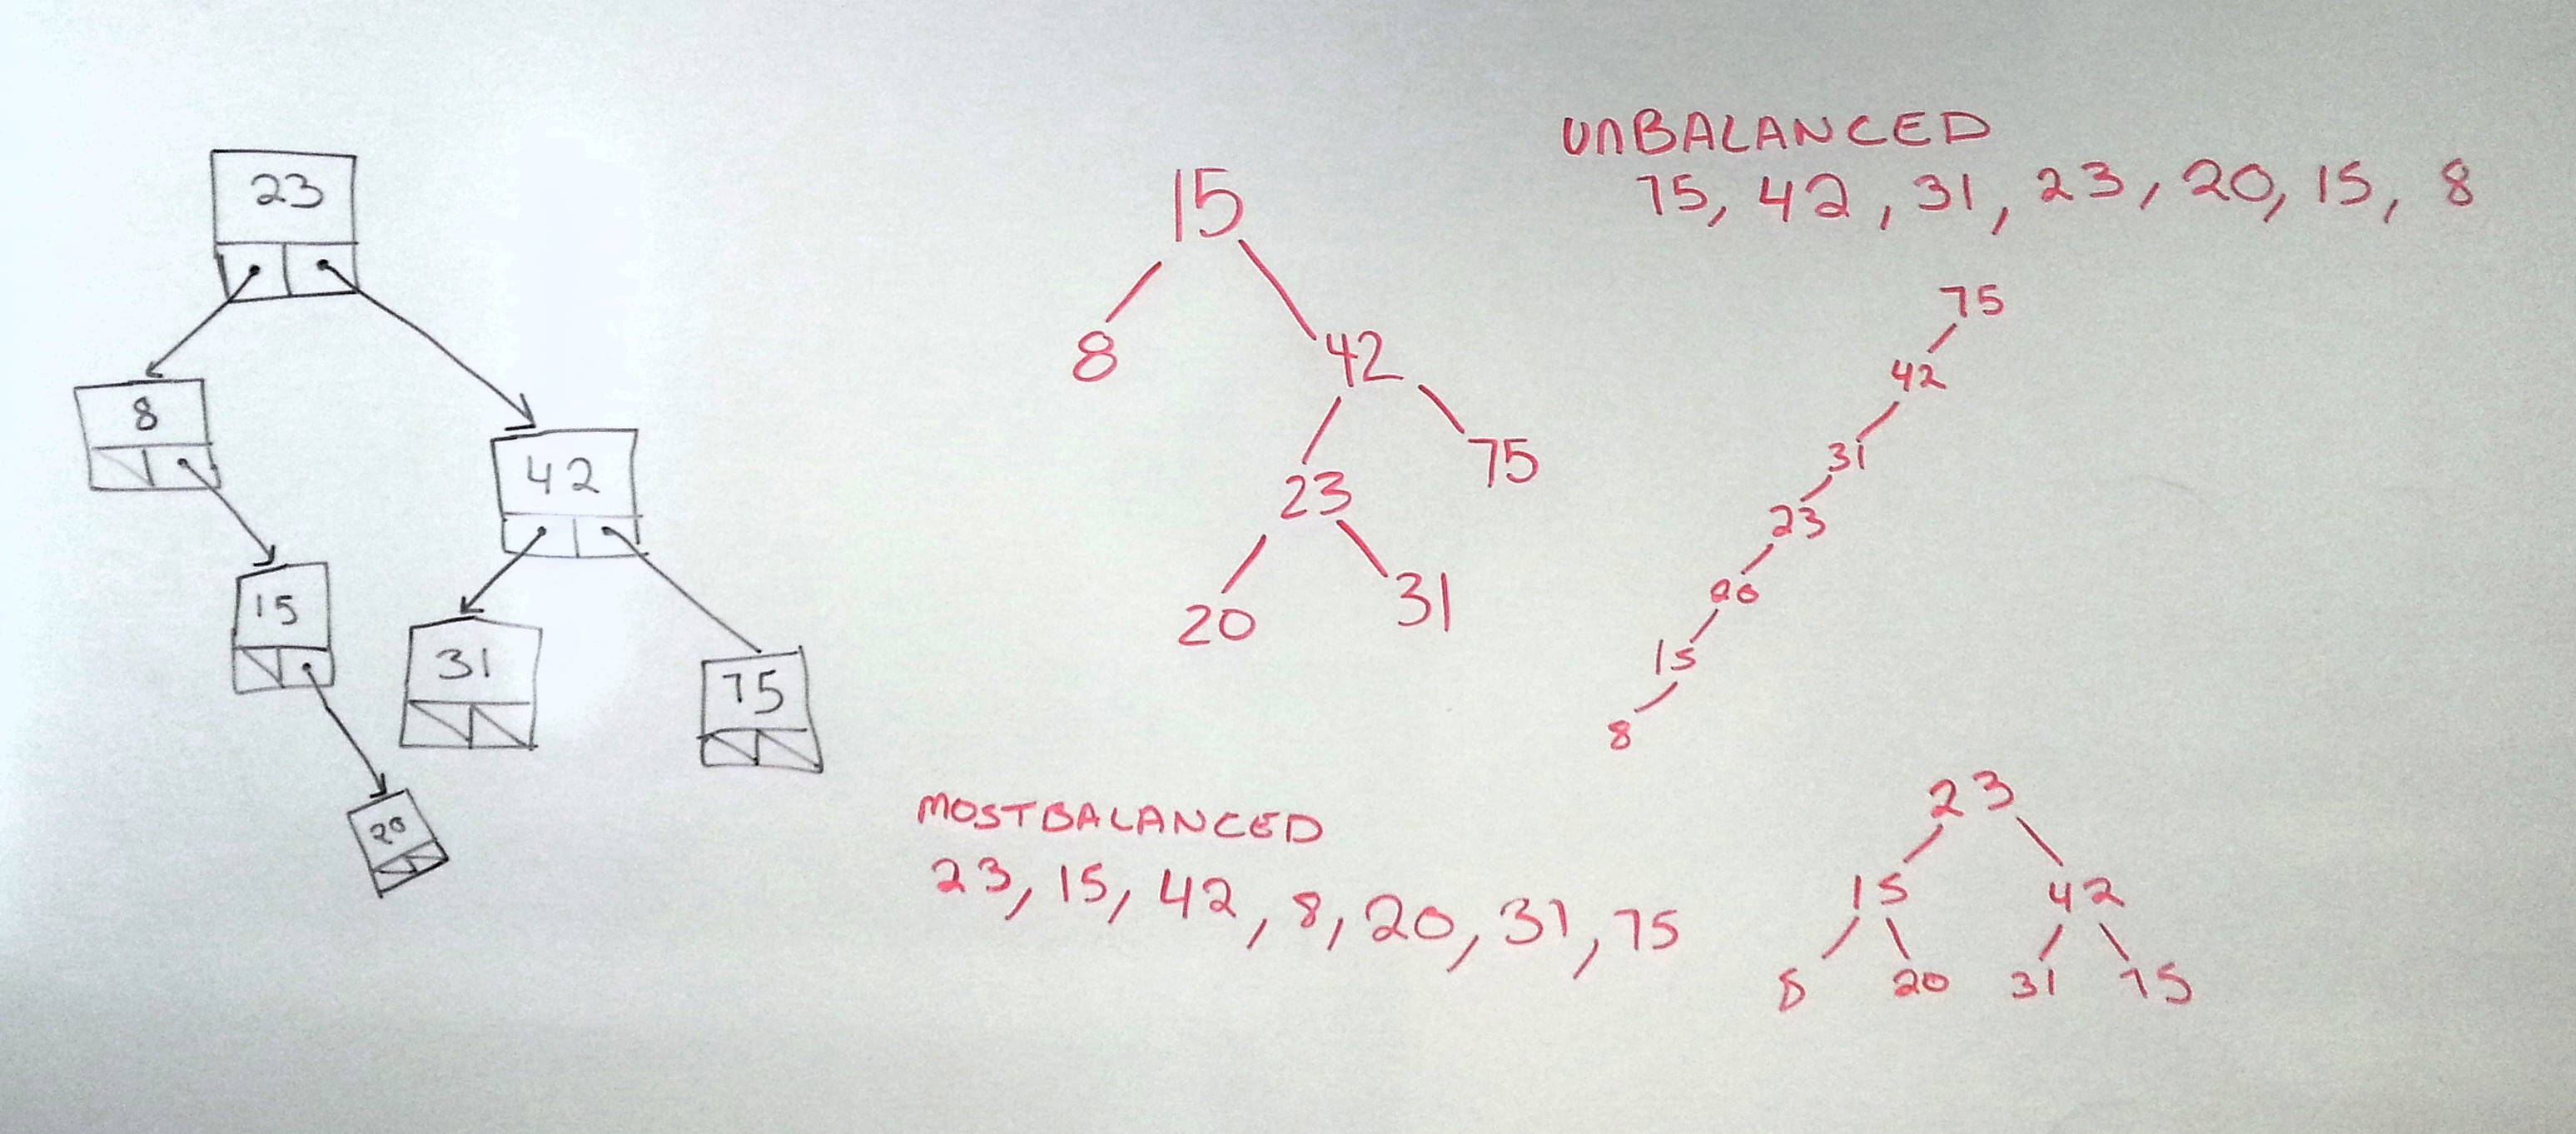 23
8
42
15
31
75
20
15
8
42
23
75
20
31
UnBALANCED
75, 42, 31, 23, 20, 15, 8
75
42
31
23
20
15
8
MOSTBALANCED
23, 15, 42, 8, 20, 31, 75
23
15 42
8 20 31 75